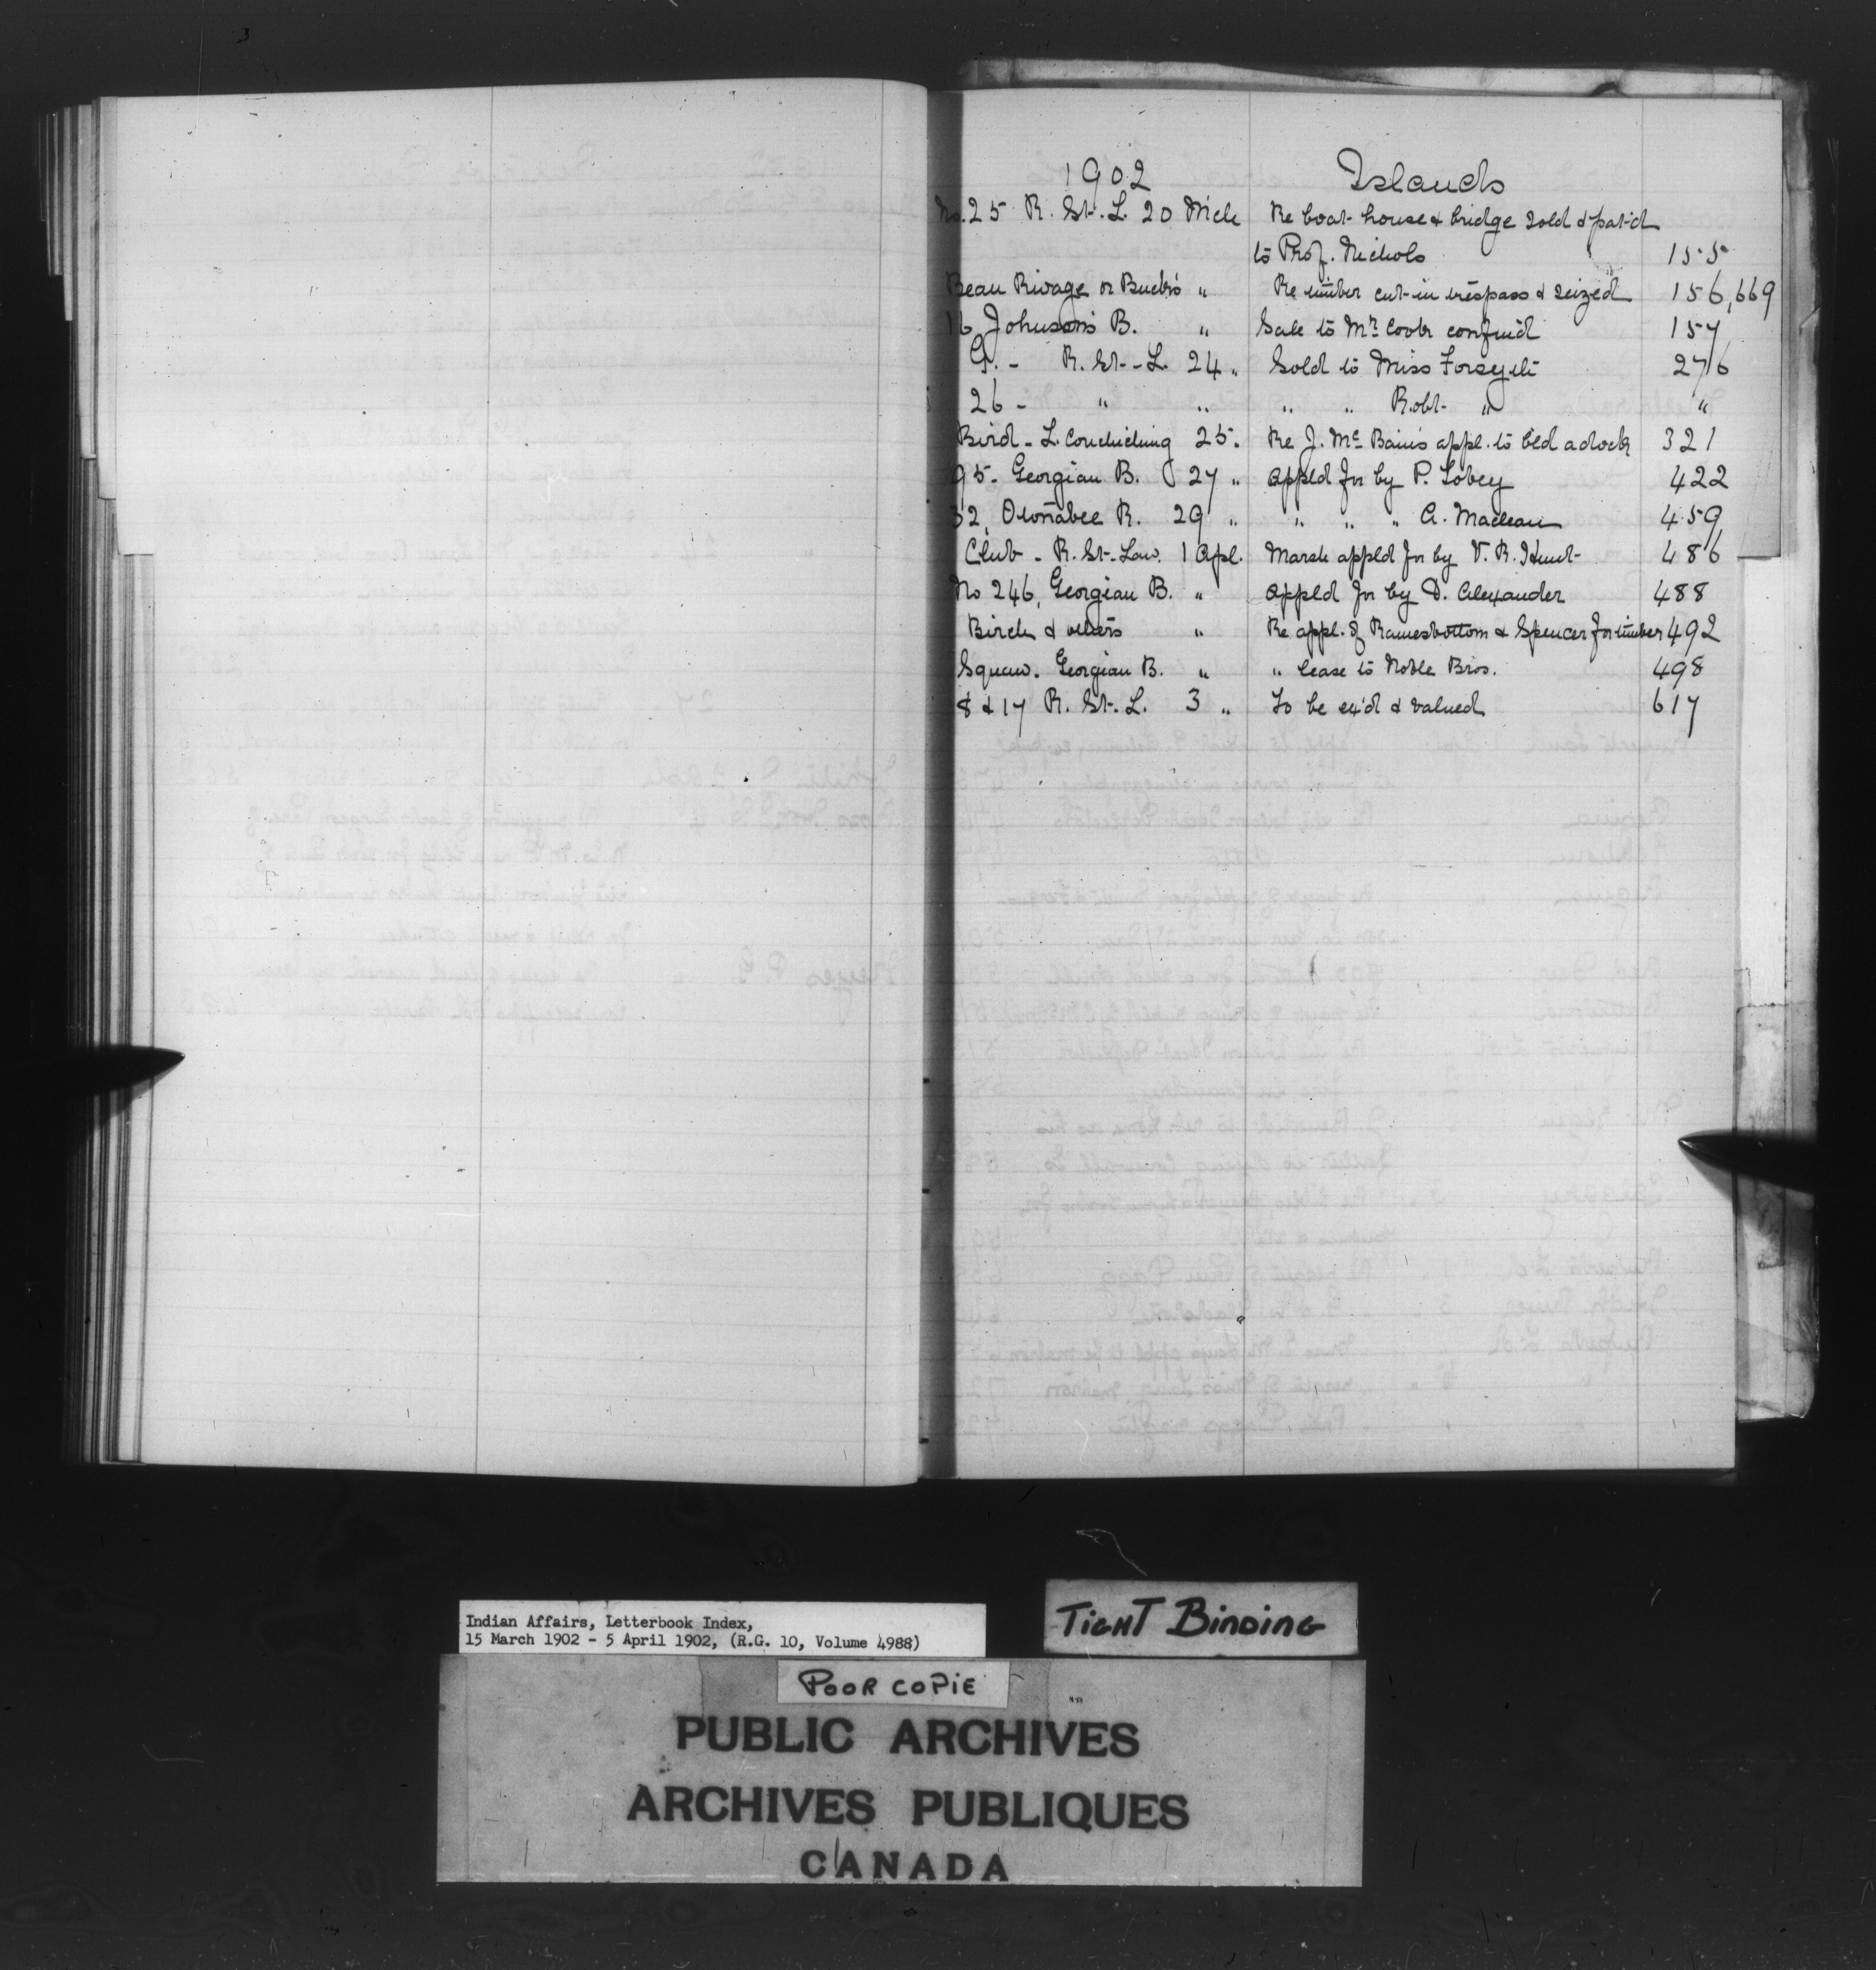 1902 Islands
No. 25 R. St. L. 20 Mch Re boat house & bridge sold & pat'd
to Prof. Nichols 155
Beau Rivage or Buck's " Re timber cut in trespass & seized 156, 669
16 Johnson's B. " Sale to Mr. Cook confmd 157
G. - R. St. L. 24 " Sold to Miss Forsyth 276
26 - " " " " Robt. " "
Bird - L. Couchiching 25 " Re J. McBain's appl. to bld a dock 321
95 - Georgian B. 27 " Appld for by P. Tobey 422
32, Otonabee R. 29 " " " " A. Maclean 459
Club - R. St. Law. 1 Apl. Marsh appld for by V. R. Hunt 486
No 246, Georgian B. " Appld for by D. Alexander 488
Birch & others " Re appl. of Ramesbottom & Spencer for timber 492
Squaw. Georgian B. " " lease to Noble Bros. 498
8 & 17 R. St. L. 3 " To be ex'd & valued 617
Indian Affairs, Letterbook Index,
15 March 1902 - 5 April 1902, (R.G. 10, Volume 4988)
TIGHT BINDING
POOR COPIE
PUBLIC ARCHIVES
ARCHIVES PUBLIQUES
CANADA